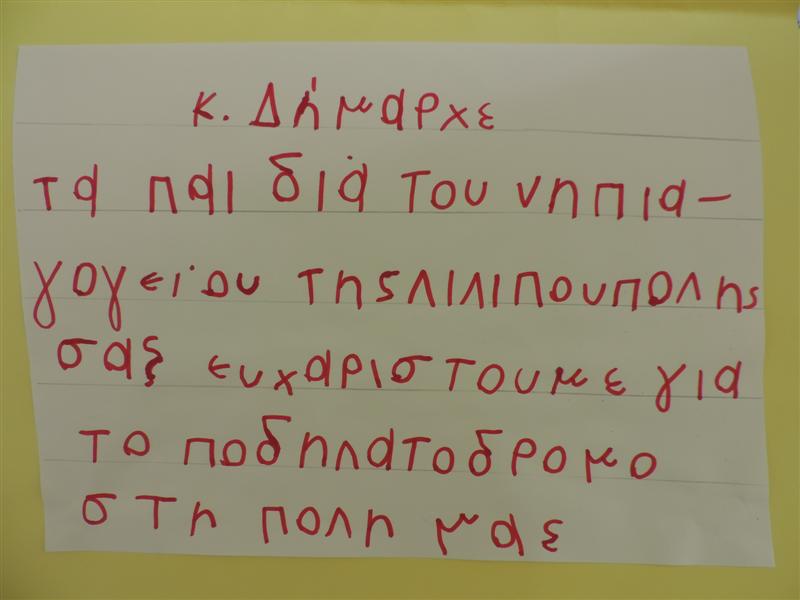 κ. Δήμαρχε
τα παι διά του νηπια-
γογείου της Λιλιπουπολης
σας ευχαριστουμε για
το ποδηλατοδρομο
στη πολη μας